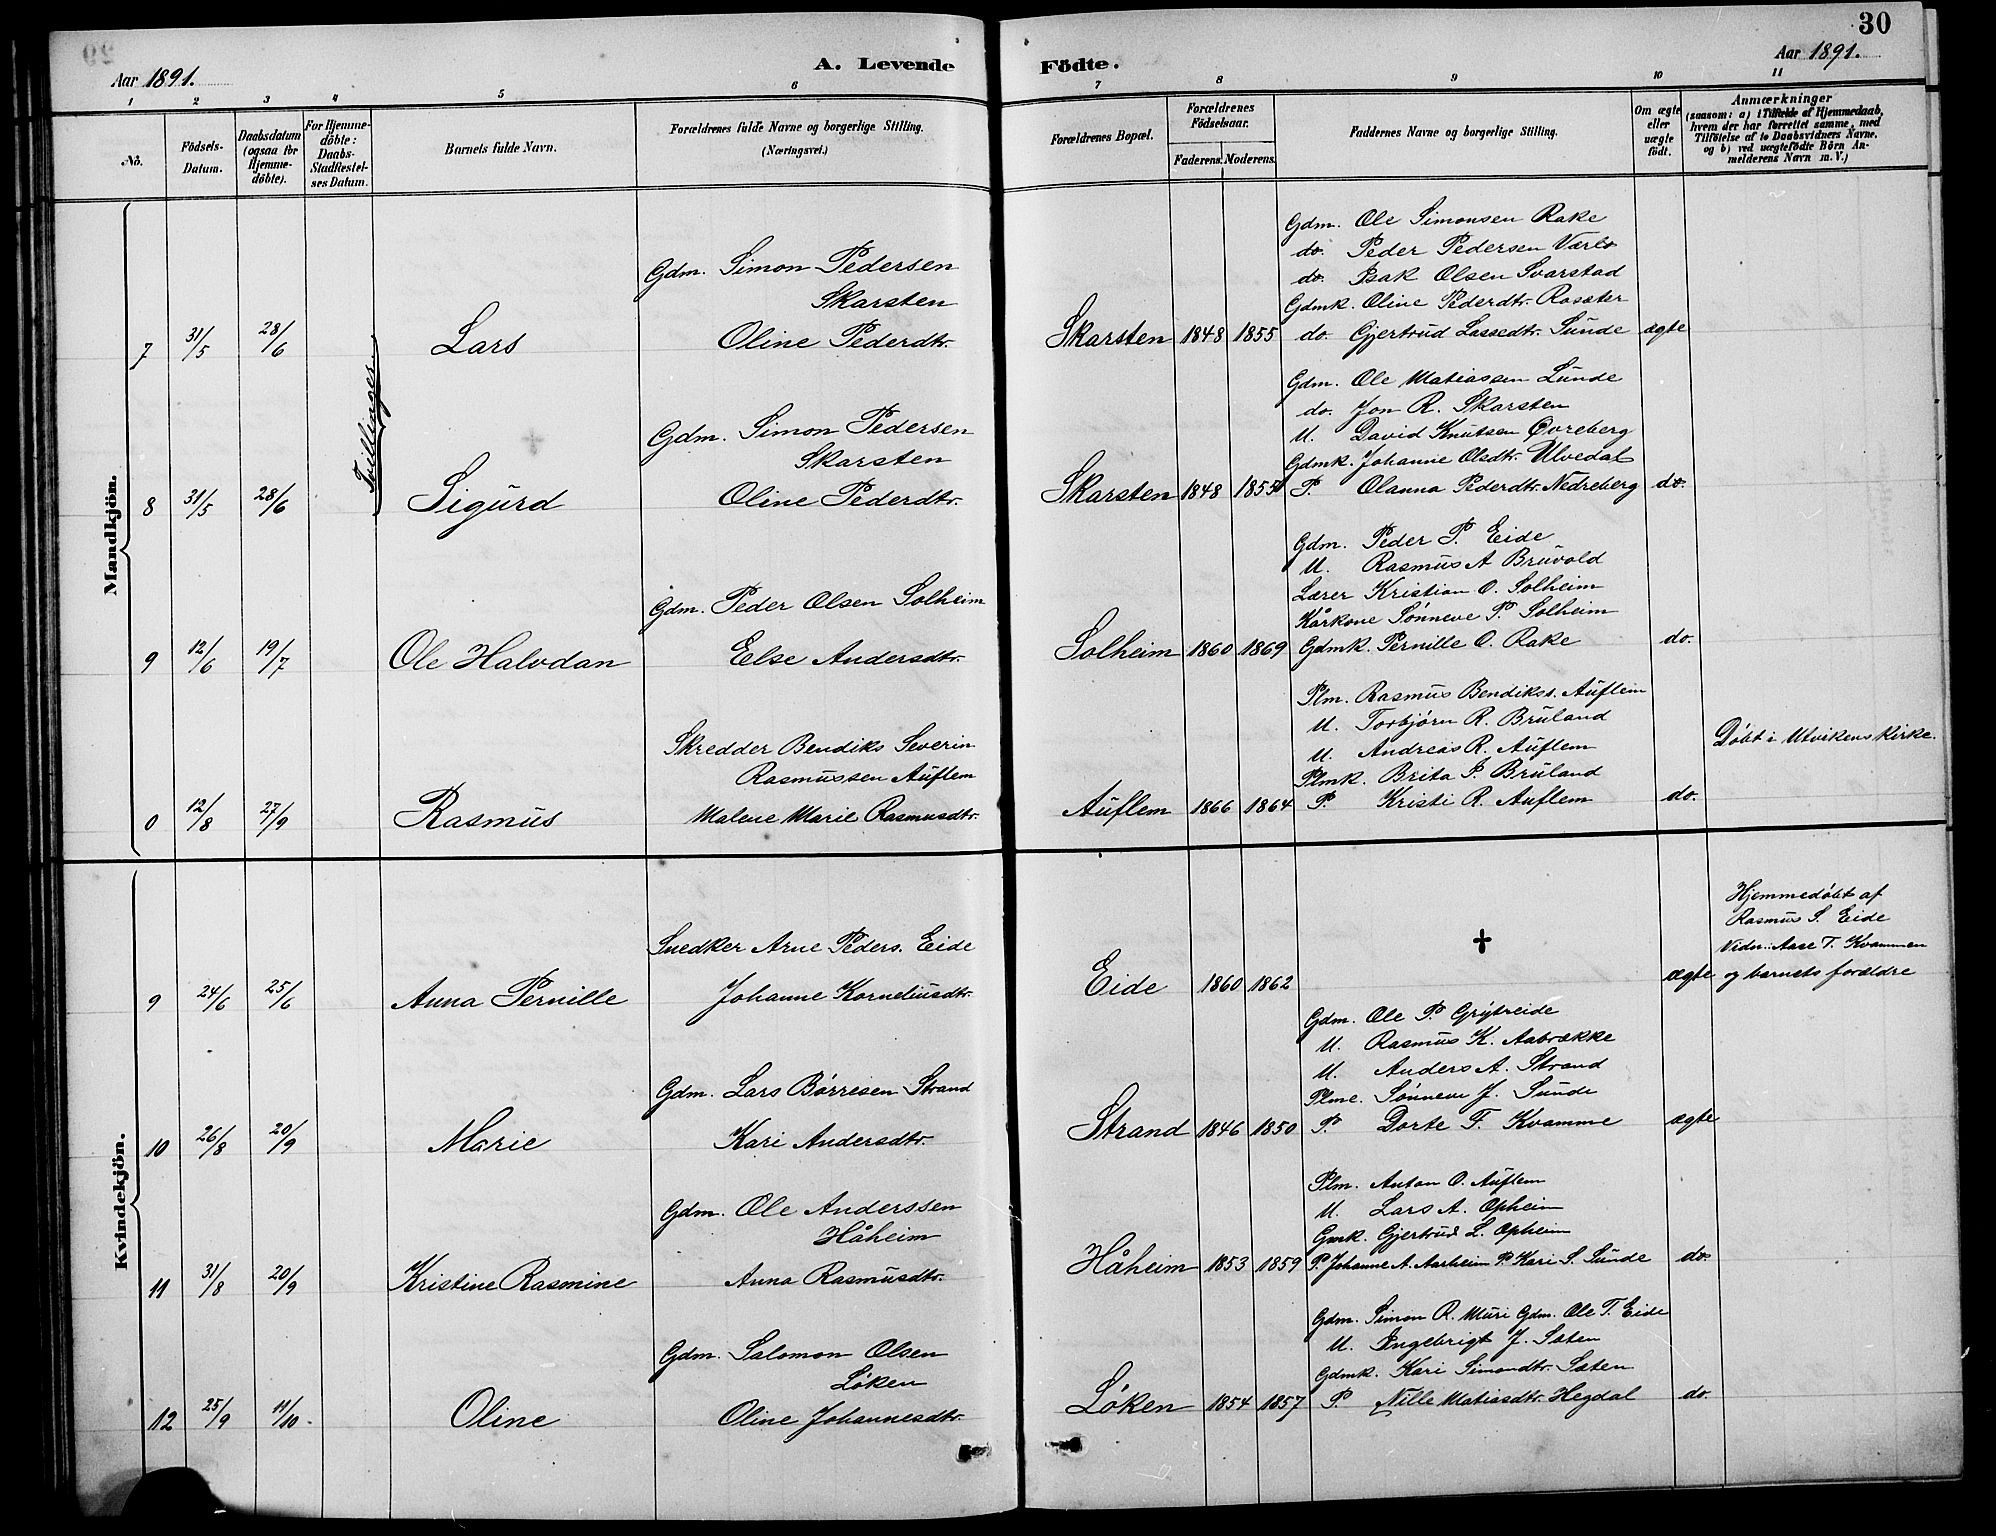 30
Aar 1891.
A. Levende Födte.
Aar 1891.
1 2 3 4 5 6 7 8 9 10 11
No.
Födsels-Datum.
Daabsdatum (ogsaa for Hjemme-döbte).
For Hjemme-döbte: Daabs-Stadfæstel-ses Datum.
Barnets fulde Navn.
Forældrenes fulde Navne og borgerlige Stilling.
(Næringsvei.)
Forældrenes Bopæl.
Forældrenes Födselsaar.
Faderens. Moderens.
Faddernes Navne og borgerlige Stilling.
Om ægte eller uægte födt.
Anmærkninger
(saasom: a) i Tilfælde af Hjemmedaab,
hvem der har forrettet samme, med
Tilföielse af to Daabsvidners Navne,
og b) ved uægtefödte Börn An-
melderens Navn m. V.)
Mandkjön.
Tvillinger
7 31/5 28/6 Lars
Gdm. Simon Pedersen
Skarsten
Oline Pederdtr.
Skarsten 1848 1855
Gdm. Ole Simonsen Rake
do. Peder Pedersen Værlo
do. Isak Olsen Svarstad
Gdmk. Oline Pederdtr. Rosster
do. Gjertrud Lassedtr. Sunde ægte
8 31/5 28/6 Sigurd
Gdm. Simon Pedersen
Skarsten
Oline Pederdtr.
Skarsten 1848 1855
Gdm. Ole Matiassen Sunde
do. Jon R. Skarsten
U. David Knutsen Øvreberg
Gdmk. Johanne Olsdtr. Ulvedal
P. Olanna Pederdtr. Nedreberg do.
9 12/6 19/7 Ole Halvdan
Gdm. Peder Olsen Solheim
Else Andersdtr.
Solheim 1860 1869
Gdm. Peder P. Eide
U. Rasmus A Bruvold
Lærer Kristian O. Solheim
Kårkone Sønneve P. Solheim
Gdmk. Pernille O. Rake do.
0 12/8 27/9 Rasmus
Skredder Bendiks Severin
Rasmussen Auflem
Malene Marie Rasmusdtr.
Auflem 1866 1864
Plm. Rasmus Bendikss. Auflem
U. Torbjørn R. Bruland
U. Andreas R. Auflem
Plmk. Brita P. Bruland
P. Kristi R. Auflem do.
Døbt i Utvikens kirke.
Kvindekjön.
9 24/6 25/6 Anna Pernille
Snedker Arne Peders. Eide
Johanne Korneliusdtr.
Eide 1860 1862
ægte
Hjemmedøbt af
Rasmus S. Eide
Vidn.: Aase T. Kvammen
og barnets forældre
10 26/8 20/9 Marie
Gdm. Lars Børresen Strand
Kari Andersdtr.
Strand 1846 1850
Gdm. Ole P. Grytreide
U. Rasmus K. Aabrække
U. Anders A. Strand
Plme. Sønneve J. Sunde
P. Dorte F. Kvamme ægte
11 31/8 20/9 Kristine Rasmine
Gdm. Ole Anderssen
Håheim
Anna Rasmusdtr.
Håheim 1853 1859
Plm. Anton O. Auflem
U. Lars A. Opheim
Gmk. Gjertrud L. Opheim
P. Johanne A. Aarheim P. Kari S. Sunde do.
12 25/9 11/10. Oline
Gdm. Salomon Olsen
Løken
Oline Johannesdtr.
Løken 1854 1857
Gdm. Simon R. Muri Gdm. Ole T. Eide
U. Ingebrigt J. Sæten
Gdmk. Kari Simondtr. Sæten
P. Nille Matiasdtr. Hegdal do.